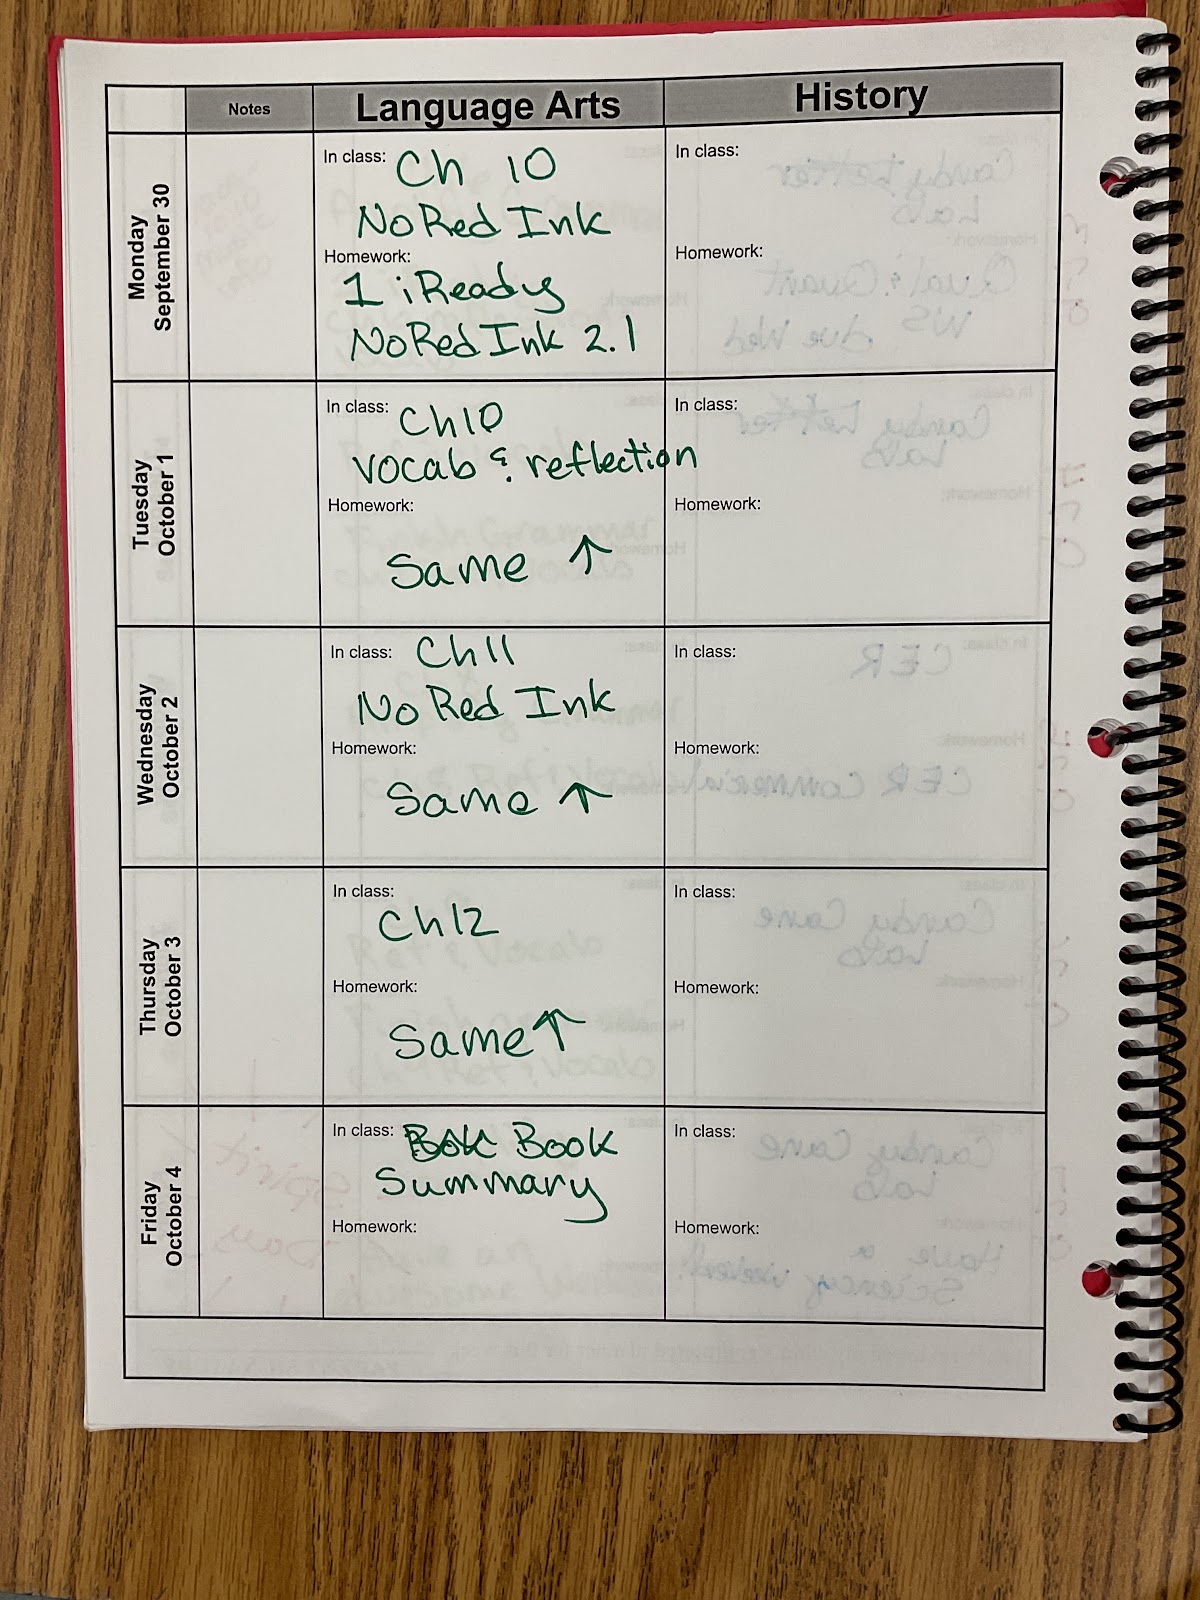 Notes Language Arts History
Monday
September 30
In class: Ch 10
No Red Ink
Homework:
1 iReady
No Red Ink 2.1
In class:
Homework:
Tuesday
October 1
In class: Ch 10
vocab & reflection
Homework:
Same ↑
In class:
Homework:
Wednesday
October 2
In class: Ch 11
No Red Ink
Homework:
Same ↑
In class:
Homework:
Thursday
October 3
In class:
Ch 12
Homework:
Same ↑
In class:
Homework:
Friday
October 4
In class: Book
Summary
Homework:
In class:
Homework: